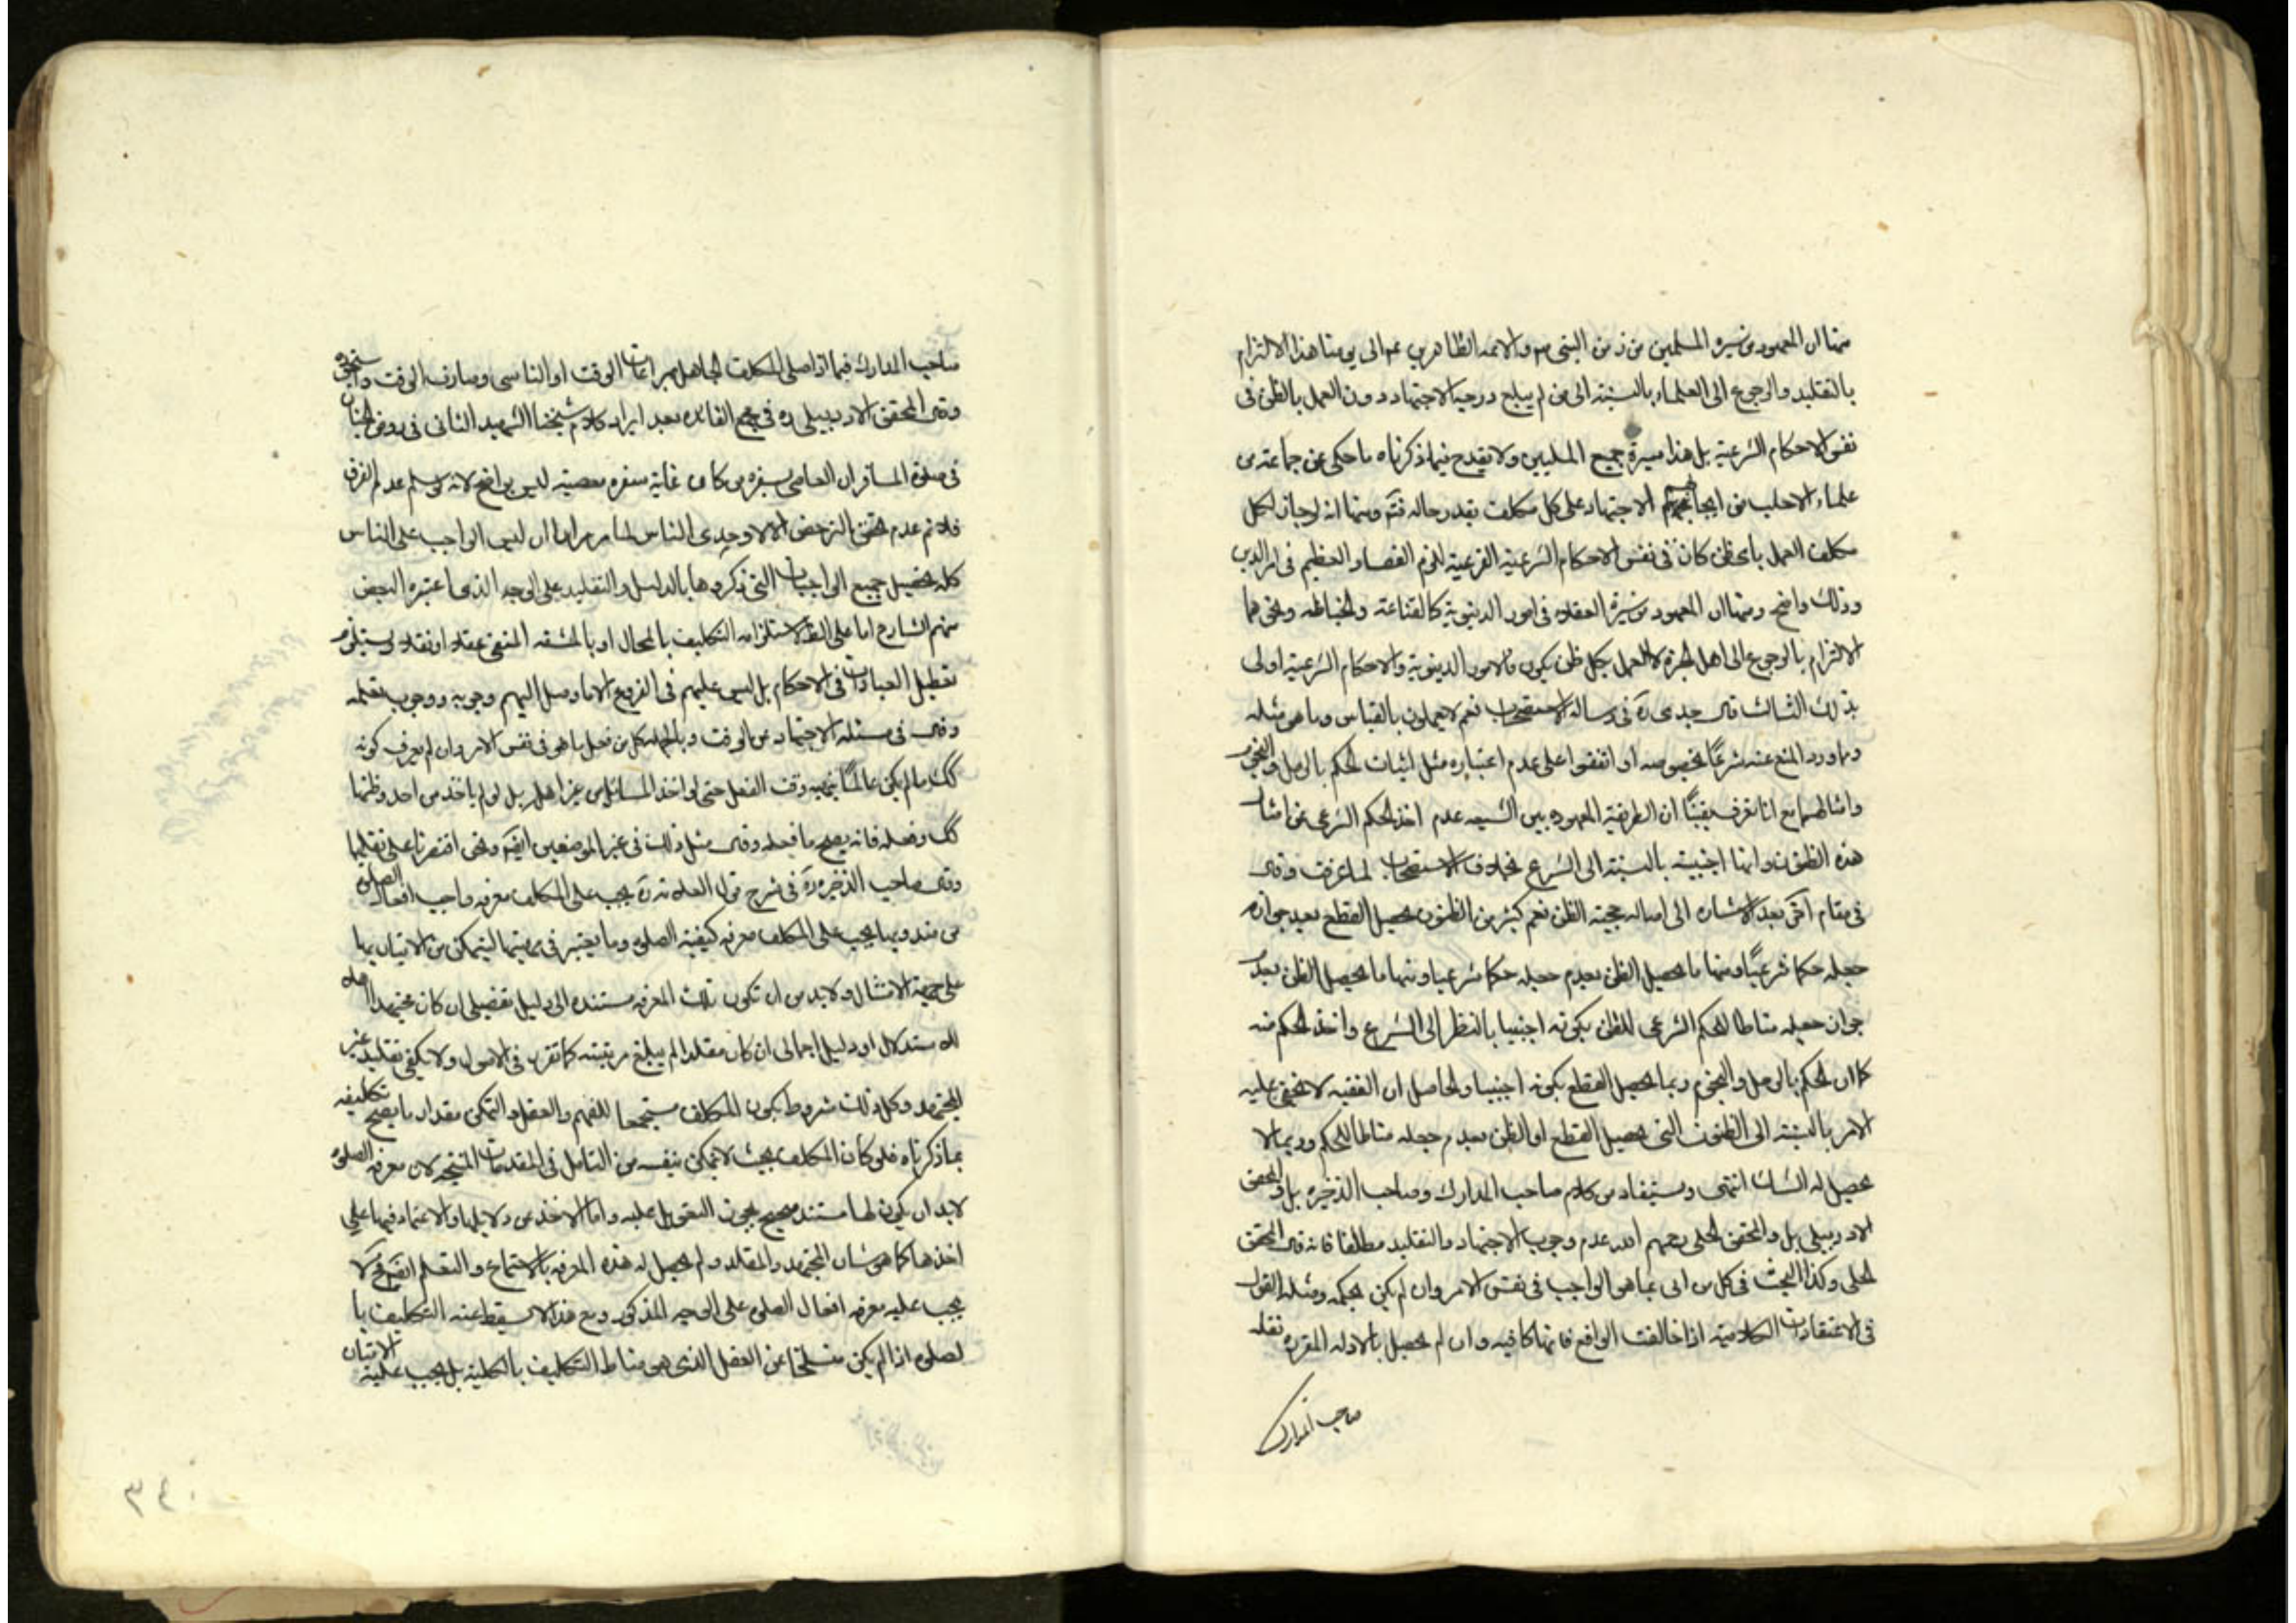 منها ان المعهود من سيره المسلمين من زمن النبى ص والائمه الطاهرين ع الى يومنا هذا الالتزام
بالتقليد والرجوع الى العلماء بالنسبته الى من لم يبلع درجه الاجتهاد دون العمل بالظن فى
نفس الاحكام الشرعية بل هذا سيرة جميع المليين ولا يقدح فيما ذكرناه ما حكى عن جماعته من
علماء الاحلب من الاجتهاد على كل مكلف بقدر حاله فته ومنها انه لو جاز لكل
مكلف العمل باى ظن كان فى نفس الاحكام الشرعية الفرعية للزم الفصاد العظيم فى امر الدين
وذلك واضح ومنها ان المعهود من سيرة العقلاء فى امور الدينوية كالقناعته والخياطه ونحوهما
الالتزام بالرجوع الى اهل الخبرة لا العمل بكل ظن يكون فالامور الدينوية والاحكام الشرعية اولى
بذلك الثالث قال جدى ره فى رساله الاستصحاب نعم لا يعملون بالقياس وما هو مثله
وما ورد المنع عنه شرعًا بخصوصه او اتفقوا على عدم اعتباره مثل اثبات الحكم بالرمل والنجوم
وامثالهما مع انا نعرف يقينًا ان الطريقة المعهوده بين الشيعه عدم اخذ الحكم الشرعى من امثال
هذه الظنون وانها اجنبية بالنسبته الى الشرع بخلاف الاستصحاب لما عرفت وقال
فى مقام اخر بعد الاشاره الى اصاله حجية الظن نعم كثير من الظنون يحصل القطع بعدم جوازه
جعله حكما شرعيًا ومنها ما يحصل الظن بعدم جعله حكما شرعيا ومنها ما يحصل الظن بعدم
جواز جعله مناطا للحكم الشرعى للظن بكونه اجنبيا بالنظر الى الشرع واخذ الحكم منه
كما ان الحكم بالرمل والنجوم ربما يحصل القطع بكونه اجنبيا والحاصل ان الفقيه لا يخفى عليه
الامر بالنسبته الى الظنون التى يحصل القطع او الظن بعدم جعله مناطا للحكم وربما لا
يحصل له الشك انتهى ويستفاد من كلام صاحب المدارك وصاحب الذخيره بل والمحقق
الاردبيلى بل والمحقق الحلى رحمهم الله عدم وجوب الاجتهاد والتقليد مطلقا فانه قال المحقق
الحلى وكذا البحث فى كل من اتى بما هو الواجب فى نفس الامر وان لم يكن بحكمه ومثله القول
فى الاعتقادات الكلامية اذا خالفت الواقع فانها كافيه وان لم يحصل بالادله المقرره نقله
صاحب المدارك
صاحب المدارك فيما اذا صلى المكلف الجاهل بمراعات الوقت او الناسى وصادف الوقت
وقال المحقق الاردبيلى ره فى مجمع الفائده بعد ايراد كلام شيخنا الشهيد الثانى فى روض الجنان
فى صلوة المسافر ان العاصى بسفره من كان غاية سفره معصية ليس بواضح لانه لو سلم عدم الفرق
فلازم عدم تحقق الترخص الا لاوحدى الناس لما مر مرارا ان ليس الواجب على الناس
كله تحصيل جميع الواجبات التى ذكروها بالدليل والتقليد على الوجه الذى اعتبره البعض
منهم الشارع اما على الفور لاستلزامه التكليف بالمحال او بالمشقه المنفى عقلا او نقلا ويستلزم
تعطيل العبادات فى الاحكام بل ليس عليهم فى الفروع الا ما وصل اليهم وجوبه ووجوب تعلمه
وقال فى مسئله الاجتهاد عن الوقت وبالجمله كل من فعل ما هو فى نفس الامر وان لم يعرف كونه
كك ما لم يكن عالمًا بنهيه وقت الفعل حتى لو اخذ المسائل من غير اهله بل لو لم ياخذ من احد وظنها
كك وفعله فانه يصح ما فعله وقال مثل ذلك فى غير الموضعين ايضه ونحن اقتصرنا على نقلهما
وقال صاحب الذخيره ره فى شرح قول العلامه ره يجب على المكلف معرفه واجب افعال الصلوة
من مندوبها يجب على المكلف معرفه كيفية الصلوه وما يعتبر فى ماهيتها ليتمكن من الاتيان بها
على جهة الامتثال ولا بد من ان تكون تلك المعرفه مستنده الى دليل تفضيلى ان كان مجتهدا اهلا
للاستدلال او دليل اجمالى ان كان مقلدا لم يبلغ مرتبته كما تقرر فى الاصول ولا يكفى تقليد غير
المجتهد وكل ذلك شروط بكون المكلف مستجمعا للفهم والعقل والتمكن مقدار ما يصح تكليفه
بما ذكرناه فلو كان المكلف بحيث لا يتمكن بنفسه من التامل فى المقدمات المنتجه لان معرفه الصلوه
لابد ان يكون لها مستند صحيح يجوز التعويل عليه واما الاخذ من دلايلها والاعتماد فيها على
اخذها كما هو شان المجتهد والمقلد ولم يحصل له هذه المعرفه بالاستماع والتعلم ايضه فلا
يجب عليه معرفه افعال الصلوه على الوجه المذكور ومع هذا لا يسقط عنه التكليف با
لصلوه اذا لم يكن منسلخا عن العقل الذى هو مناط التكليف بالكلية بل يجب عليه الاتيان
٣٤٠